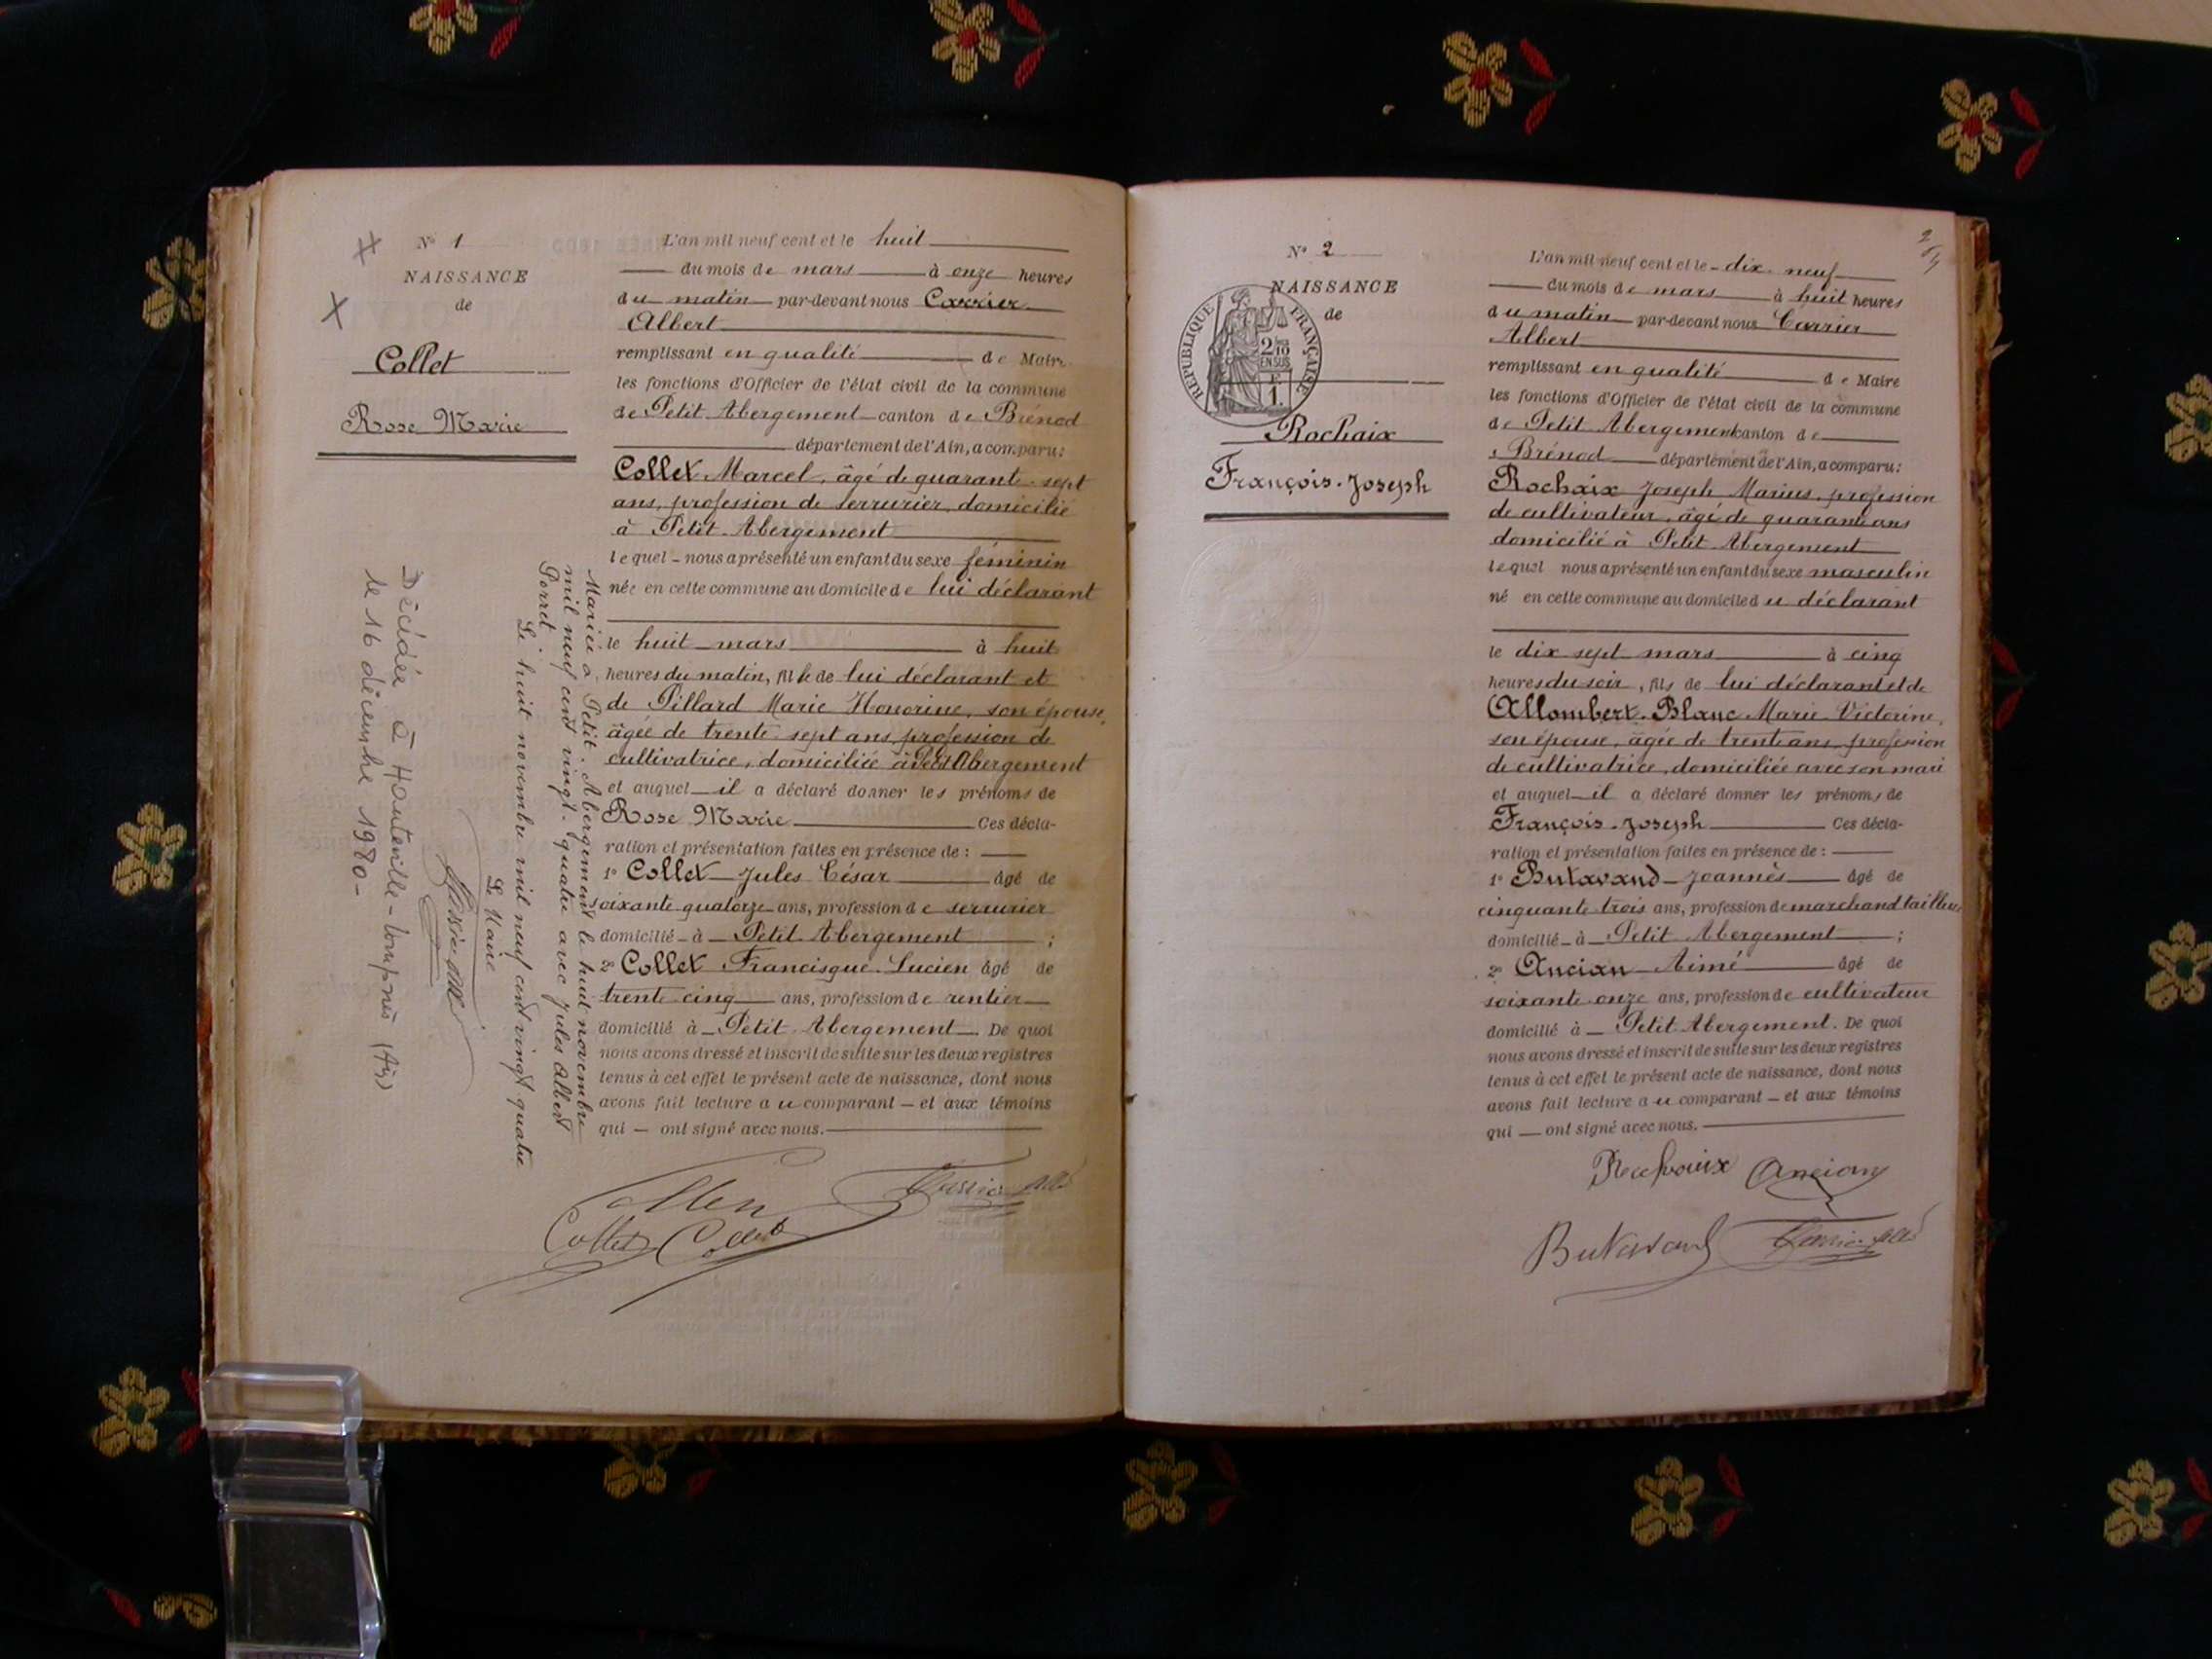 N° 1
NAISSANCE
de
Collet
Rose Marie
L'an mil neuf cent et le huit
du mois de mars à onze heures
du matin par-devant nous Carrier
Albert
remplissant en qualité de Maire
les fonctions d'Officier de l'état civil de la commune
de Petit Abergement canton de Brénod
département de l'Ain, a comparu:
Collet Marcel, âgé de quarante-sept
ans, profession de serrurier, domicilié
à Petit Abergement
lequel nous a présenté un enfant du sexe féminin
née en cette commune au domicile de lui déclarant
le huit mars à huit
heures du matin, fille de lui déclarant et
de Pillard Marie Honorine, son épouse,
âgée de trente-sept ans, profession de
cultivatrice, domiciliée à Petit Abergement
et auquel il a déclaré donner les prénoms de
Rose Marie Ces décla-
ration et présentation faites en présence de :
1° Collet Jules César âgé de
soixante quatorze ans, profession de serrurier
domicilié à Petit Abergement ;
2° Collet Francisque Lucien âgé de
trente cinq ans, profession de rentier
domicilié à Petit Abergement. De quoi
nous avons dressé et inscrit de suite sur les deux registres
tenus à cet effet le présent acte de naissance, dont nous
avons fait lecture au comparant et aux témoins
qui ont signé avec nous.
Collet Collet
Mariée à Petit-Abergement le huit novembre
mil neuf cent vingt-quatre avec Jules Albert
Perret
Le huit novembre mil neuf cent vingt quatre
Le Maire
Décédée à Hauteville-Lompnes (Ain)
le 16 décembre 1980-
2
N° 2
NAISSANCE
de
REPUBLIQUE FRANÇAISE
2/10
EN SUS
F.
1.
Rochaix
François-Joseph
L'an mil neuf cent et le dix-neuf
du mois de mars à huit heures
du matin par-devant nous Carrier
Albert
remplissant en qualité de Maire
les fonctions d'Officier de l'état civil de la commune
de Petit Abergement canton de
Brénod département de l'Ain, a comparu:
Rochaix Joseph Marius, profession
de cultivateur, âgé de quarante ans
domicilié à Petit Abergement
lequel nous a présenté un enfant du sexe masculin
né en cette commune au domicile du déclarant
le dix sept mars à cinq
heures du soir, fils de lui déclarant et de
Allombert-Blanc Marie Victorine,
son épouse, âgée de trente ans, profession
de cultivatrice, domiciliée avec son mari
et auquel il a déclaré donner les prénoms de
François-Joseph Ces décla-
ration et présentation faites en présence de :
1° Butavand Joannès âgé de
cinquante trois ans, profession de marchand tailleur
domicilié à Petit Abergement ;
2° Ancian Aimé âgé de
soixante onze ans, profession de cultivateur
domicilié à Petit Abergement. De quoi
nous avons dressé et inscrit de suite sur les deux registres
tenus à cet effet le présent acte de naissance, dont nous
avons fait lecture au comparant et aux témoins
qui ont signé avec nous.
Rochaix Ancian
Butavand